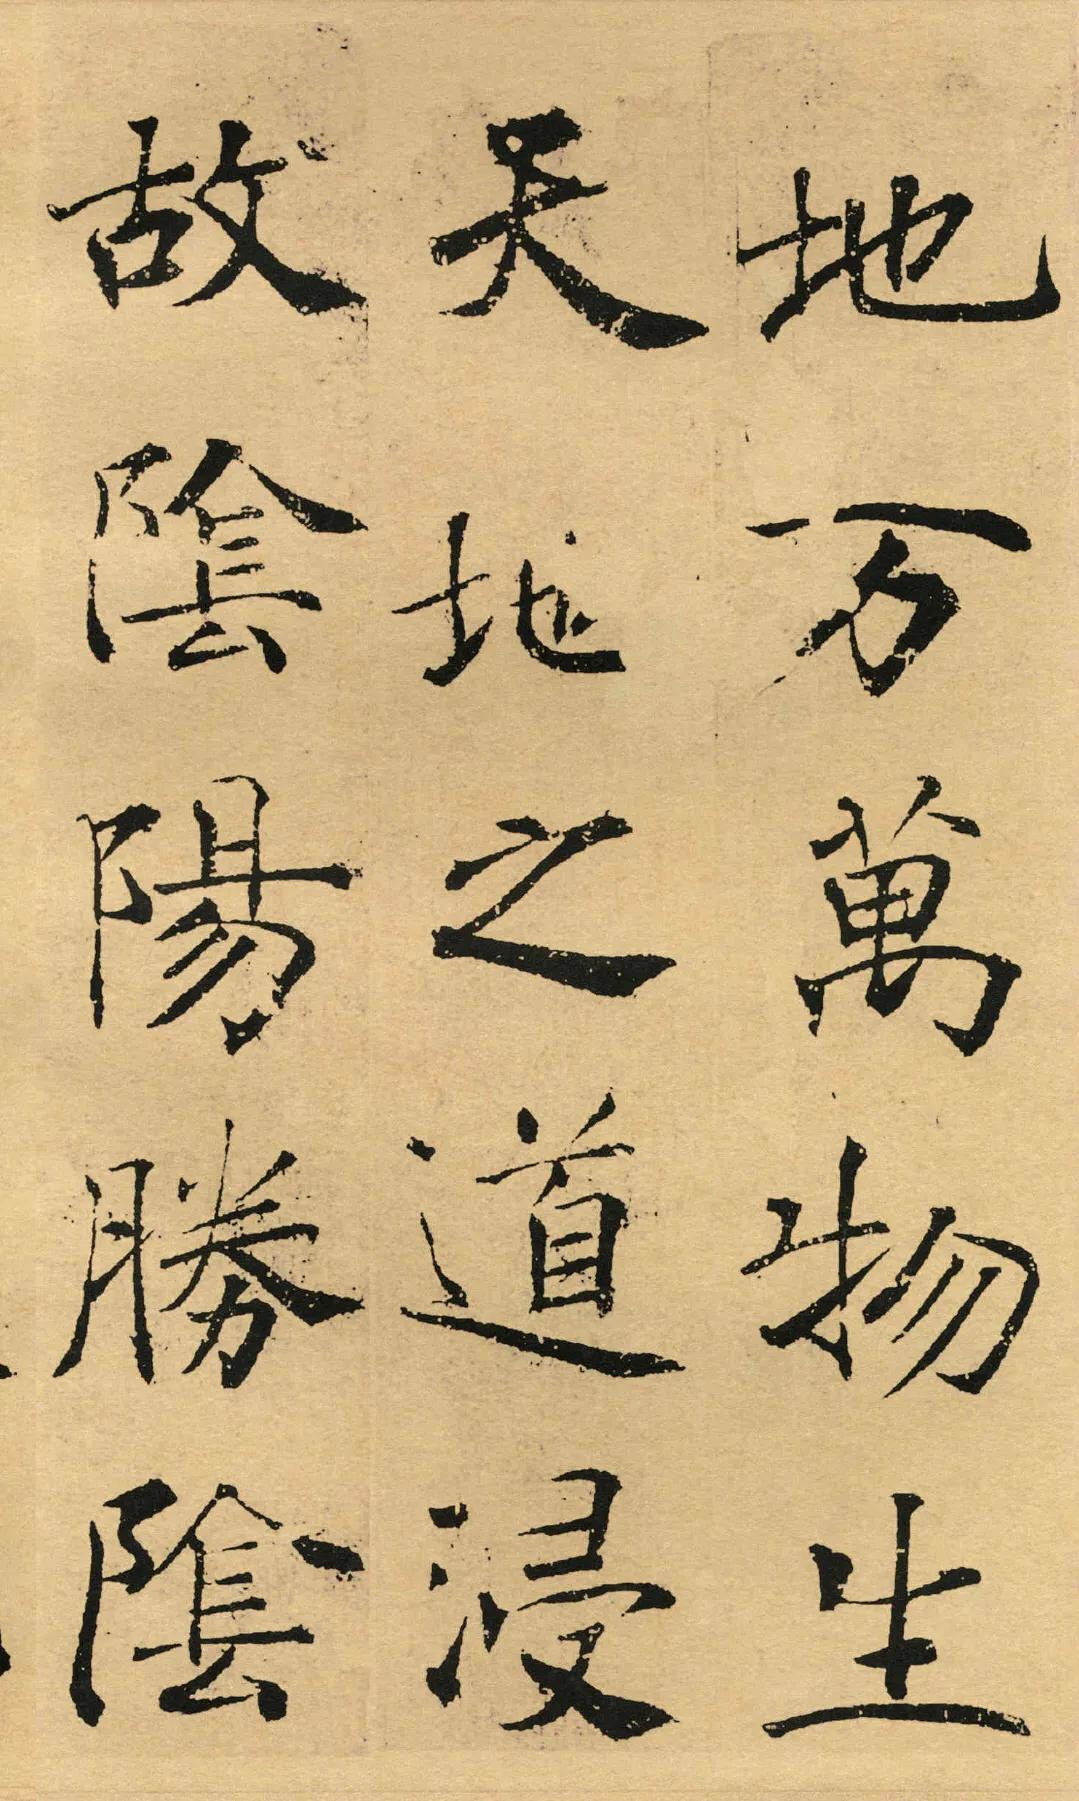 地万萬物生
天地之道浸
故陰陽勝陰